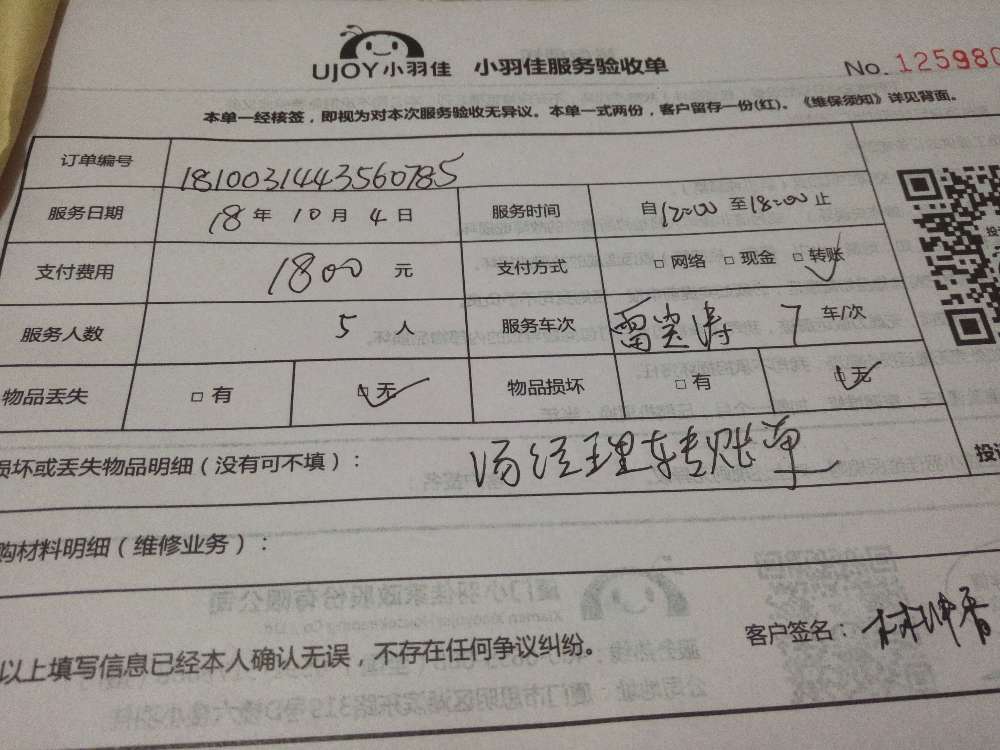 UJOY小羽佳 小羽佳服务验收单 No. 125980
本单一经核签，即视为对本次服务验收无异议。本单一式两份，客户留存一份(红)。《维保须知》详见背面。
订单编号 1810031443560785
服务日期 18 年 10 月 4 日 服务时间 自12:00 至18:00 止
支付费用 1800 元 支付方式 □ 网络 □ 现金 □ 转账
服务人数 5 人 服务车次 雷 涛 7 车/次
物品丢失 □ 有 □ 无 物品损坏 □ 有 □ 无
损坏或丢失物品明细（没有可不填）： 汤经理 转账单
购材料明细（维修业务）：
以上填写信息已经本人确认无误，不存在任何争议纠纷。 客户签名： 林坤香